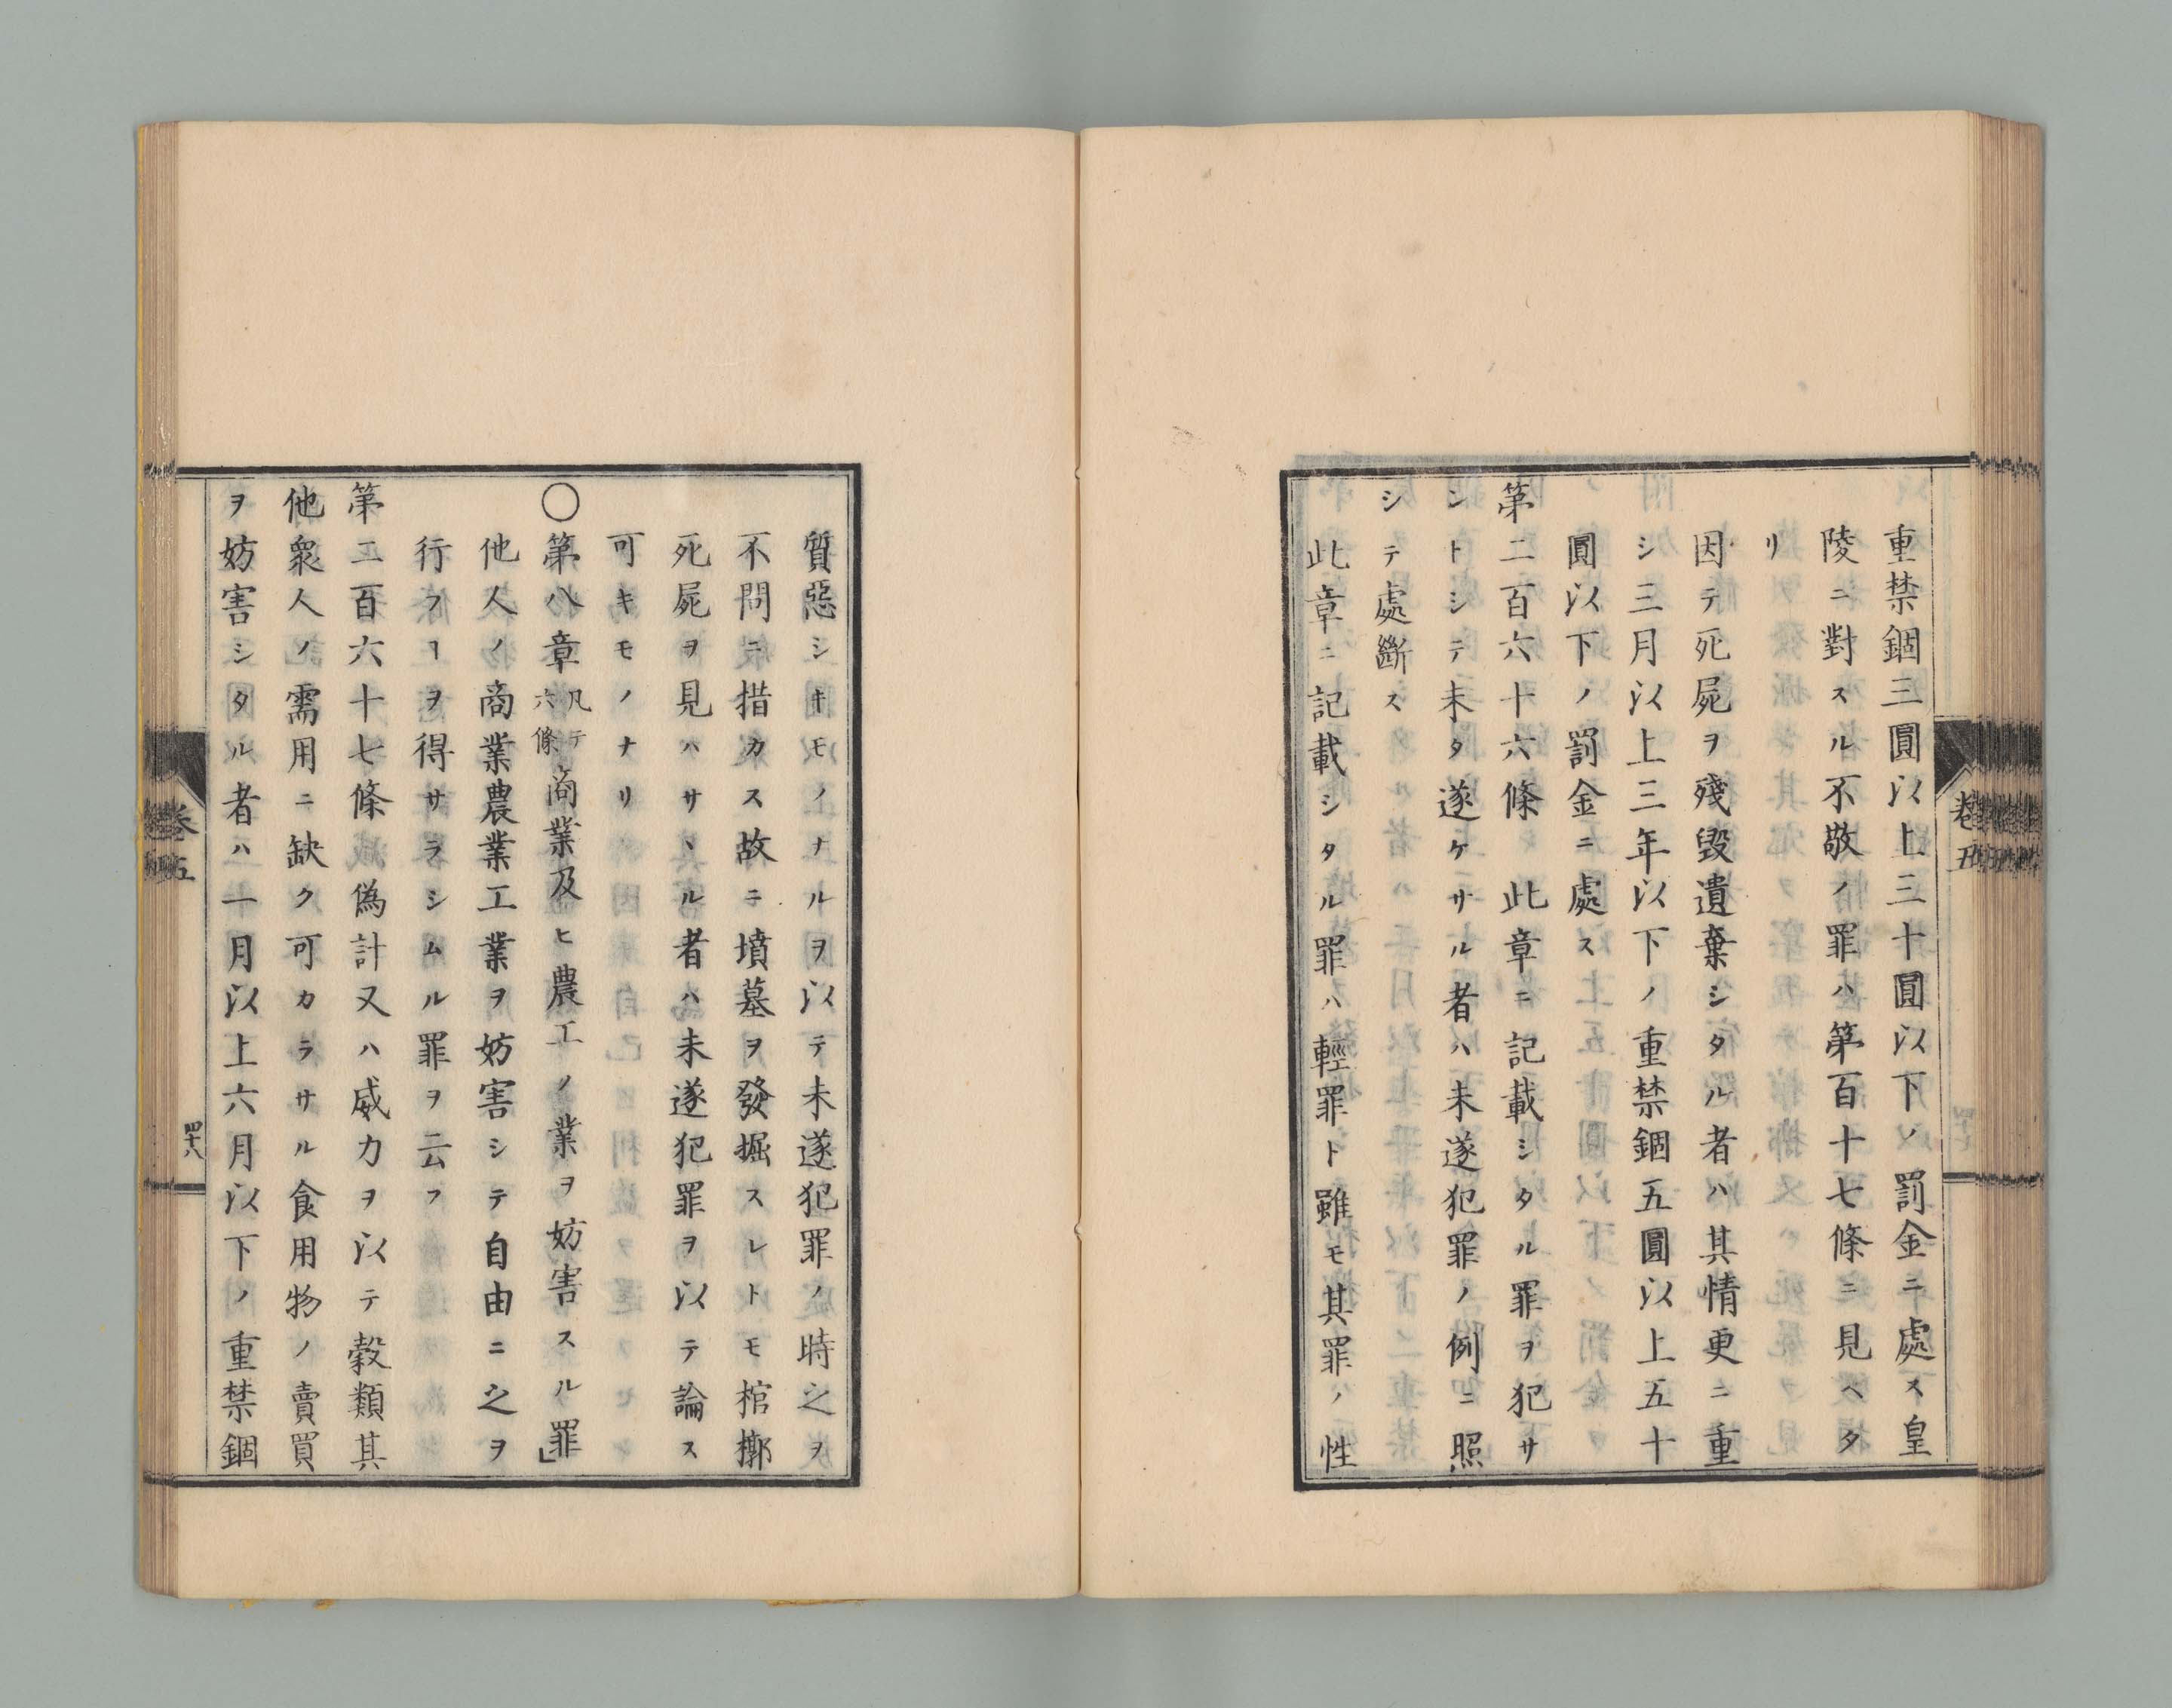 重禁錮三圓以上三十圓以下ノ罰金ニ處ス皇
陵ニ對スル不敬ノ罪ハ第百十七條ニ見ヘタ
リ
因テ死屍ヲ殘毀遺棄シタル者ハ其情更ニ重
シ三月以上三年以下ノ重禁錮五圓以上五十
圓以下ノ罰金ニ處ス
第二百六十六條 此章ニ記載シタル罪ヲ犯サ
ントシテ未タ遂ケサル者ハ未遂犯罪ノ例ニ照
シテ處斷ス
此章ニ記載シタル罪ハ輕罪ト雖モ其罪ノ性
卷五
質惡シキモノナルヲ以テ未遂犯罪ノ時之ヲ
不問ニ措カス故ニ墳墓ヲ發掘スレトモ棺槨
死屍ヲ見ハサヽル者ハ未遂犯罪ヲ以テ論ス
可キモノナリ
○第八章 凡テ六條 商業及ヒ農工ノ業ヲ妨害スル罪」
他人ノ商業農業工業ヲ妨害シテ自由ニ之ヲ
行フヿヲ得サラシムル罪ヲ云フ
第二百六十七條 偽計又ハ威力ヲ以テ穀類其
他衆人ノ需用ニ缺ク可カラサル食用物ノ賣買
ヲ妨害シタル者ハ一月以上六月以下ノ重禁錮
卷五
四十八